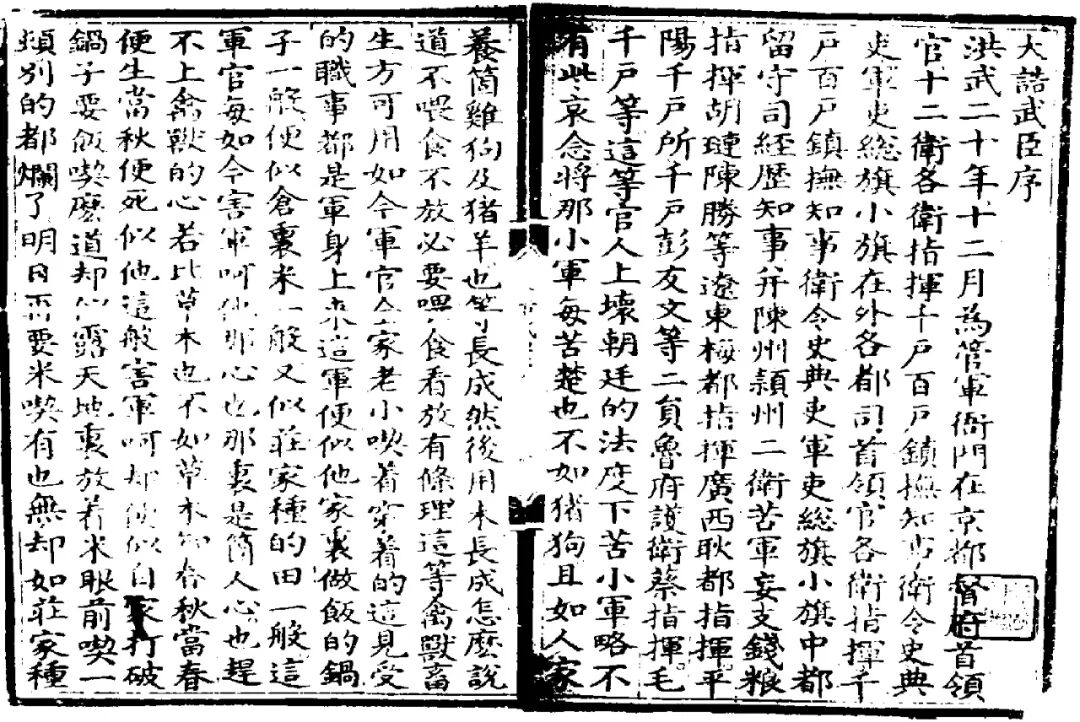 大誥武臣序
洪武二十年十二月為管軍衙門在京都督府首領
官十二衛各衛指揮千戶百戶鎮撫知事衛令史典
吏軍吏總旗小旗在外各都司首領官各衛指揮千
戶百戶鎮撫知事衛令史典吏軍吏總旗小旗中都
留守司經歷知事并陳州潁州二衛苦軍妄支錢粮
指揮胡璉陳勝等遼東梅都指揮廣西耿都指揮平
陽千戶所千戶彭友文等二負魯府護衛蔡指揮毛
千戶等這等官人上壞朝廷的法度下苦小軍略不
有些哀念將那小軍每苦楚也不如猪狗且如人家
養箇雞狗及猪羊也等長成然後用未長成怎麼說
道不喂食不放必要喂食看放有條理這等禽獸畜
生方可用如今軍官全家老小喫着穿着的這見受
的職事都是軍身上來這軍便似他家裏做飯的鍋
子一般便似倉裏米一般又似莊家種的田一般這
軍官每如今害軍呵他那心也那裏是箇人心也趕
不上禽獸的心若比草木也不如草木知春秋當春
便生當秋便死似他這般害軍呵却便似自家打破
鍋子要飯喫麼道却似露天地裏放着米眼前喫一
頓別的都爛了明日再要米喫有也無却如莊家種